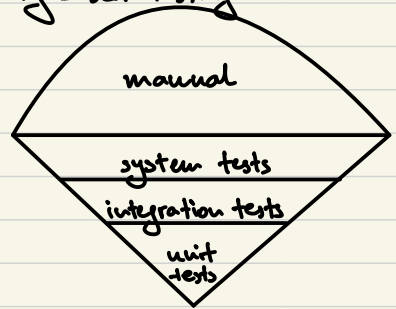 manual
system tests
integration tests
unit
tests